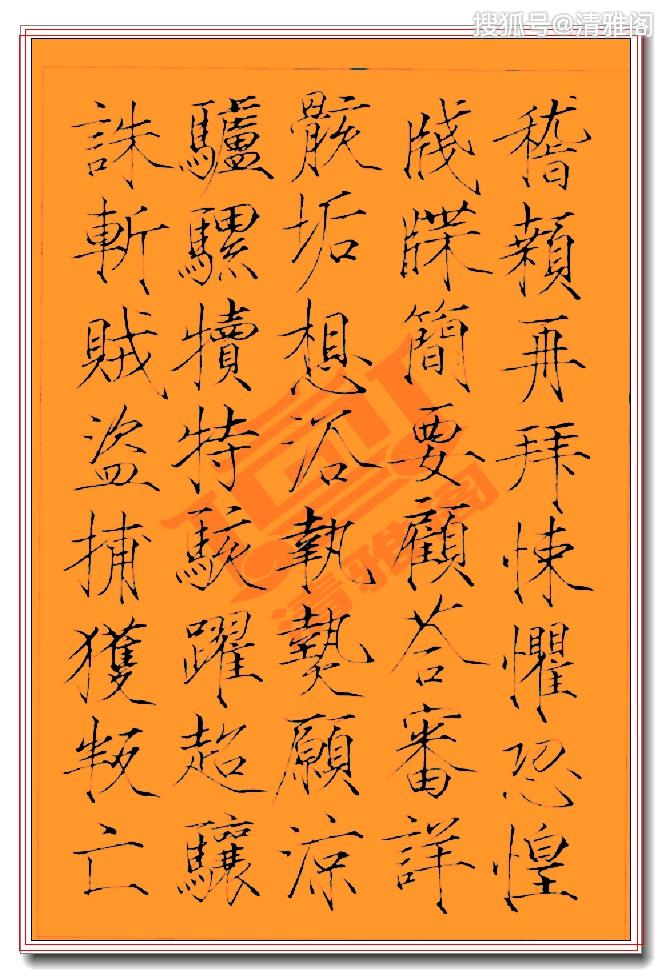 搜狐号@清雅阁
稽顙再拜悚懼恐惶
牋牒簡要顧荅審詳
骸垢想浴執熱願涼
驢騾犢特駭躍超驤
誅斬賊盜捕獲叛亡
清雅阁